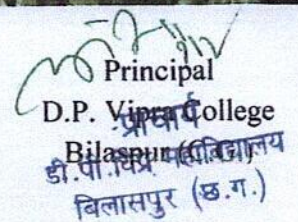 Principal
D.P. Vipra College
Bilaspur (C.G.)
प्राचार्य
डी.पी.विप्र महाविद्यालय
बिलासपुर (छ.ग.)